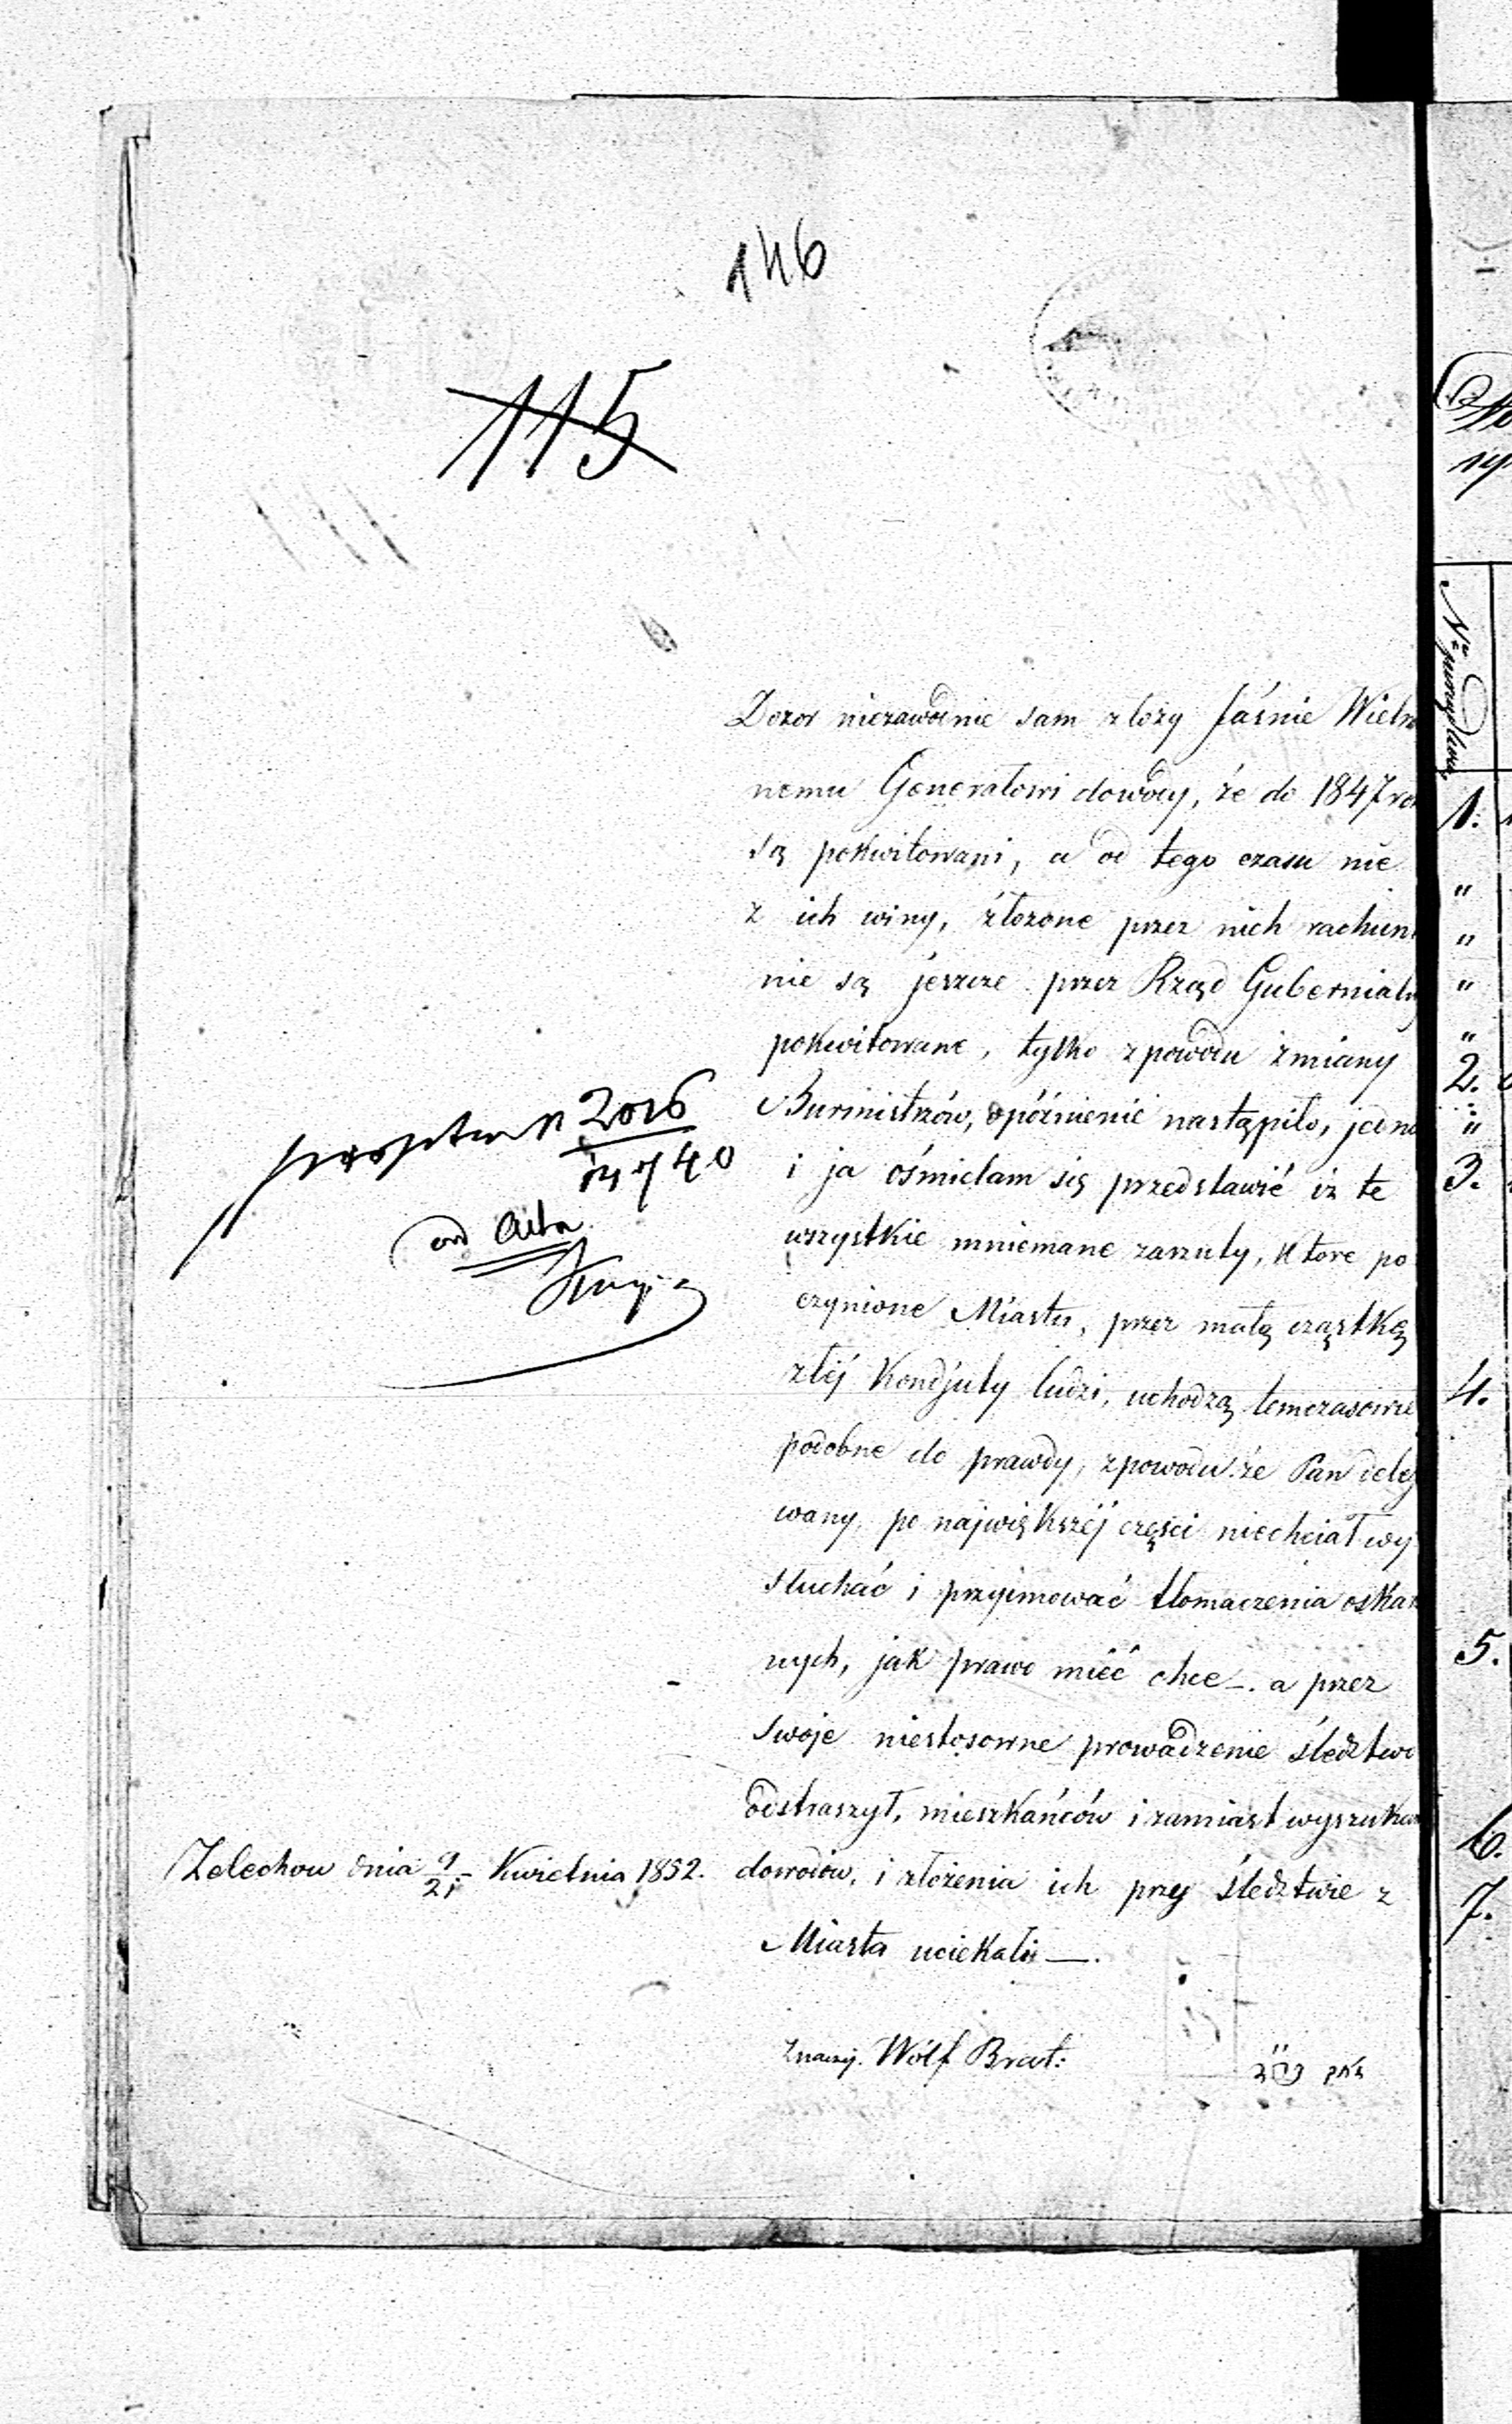 146
115
Dozor niezawodnie sam złoży Jaśnie Wielmo
nemu Generałowi dowody, że do 1847 rok
są pokwitowani, a od tego czasu nie
z ich winy, złożone przez nich rachun
nie są jeszcze przez Rząd Gubernialny
pokwitowane, tylko zpowodu zmiany
Burmistrzów, opóźnienie nastąpiło, jedna
i ja ośmielam się przedstawić iż te
wszystkie mniemane zarzuty, które po
czynione Miastu, przez małą cząstkę
złéj Kondjuty ludzi, uchodzą temczasowie
podobne do prawdy, zpowodu że Pan deleg
wany, po największéj części niechciał wy
słuchać i przyimować tłomaczenia oskarż
nych, jak prawo mieć chce _. a przez
swoje niestosowne prowadzenie śledztwo
odstraszył, mieszkańców i zamiast wyszukan
dowodów, i złożenia ich przy śledztwie z
Miasta uciekali —.
2016
14740
od Akta
Żelechow dnia 9/21 Kwietnia 1852.
znaczy. Wólf Brat:
Nr porządkowy
1.
"
"
"
"
2.
"
3.
4.
5.
6.
7.